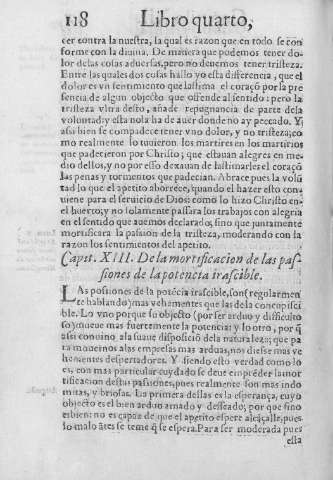 118 Libro quarto,
cer contra la nuestra, la qual es razon que en todo se con
forme con la diuina. De manera que podemos tener do-
lor de las cosas aduersas, pero no deuemos tener tristeza.
Entre las quales dos cosas hallo yo esta diferencia, que el
dolor es vn sentimiento que lastima el coraçõ por la pre
sencia de algun objecto que offende al sentido: pero la
tristeza vltra desto, añade repugnancia de parte de la
voluntad: y esta nola ha de auer donde no ay peccado. Y
assi bien se compadece tener vno dolor, y no tristeza; co
mo realmente lo tuuieron los martires en los martirios
que padecieron por Christo, que estauan alegres en me
dio dellos, y no por esso dexauan de lastimarles el coraçõ
las penas y tormentos que padecian. Abrace pues la volũ
tad lo que el apetito aborrece, quando el hazer esto con-
uiene para el seruicio de Dios: como lo hizo Christo en
el huerto; y no solamente passara los trabajos con alegria
en el sentido que auemos declarado, sino que juntamente
mortificara la passion de la tristeza, moderando con la
razon los sentimientos del apetito.
Capit. XIII. De la mortificacion de las pas-
siones de la potencia irascible.
LAs passiones de la potẽcia irascible, son (regularmen
te hablando) mas vehamentes que las de la concupisci
ble. Lo vno porque su objecto (por ser arduo y dificulto
so) mueue mas fuertemente la potencia: y lo otro, por q̃
assi conuino a la suaue disposiciõ de la naturaleza; que pa
ra mouernos a las empresas mas arduas, nos diesse mas ve
hementes despertadores. Y siendo esto verdad como lo
es, con mas particular cuydado se deue emprẽder la mor
tificacion destas passiones, pues realmente son mas indo
mitas, y briosas. La primera dellas es la esperança, cuyo
objecto es el bien arduo amado y desseado, por que sino
es bien: no es capaz de que el apetito espere alcãçalle, pues
lo malo ãtes se teme q̃ se espera. Para ser moderada pues
esta